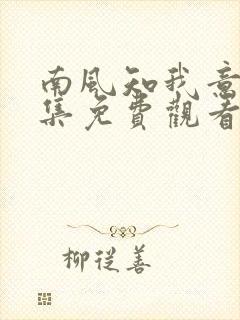 南風知我意
集免費觀看
柳從善